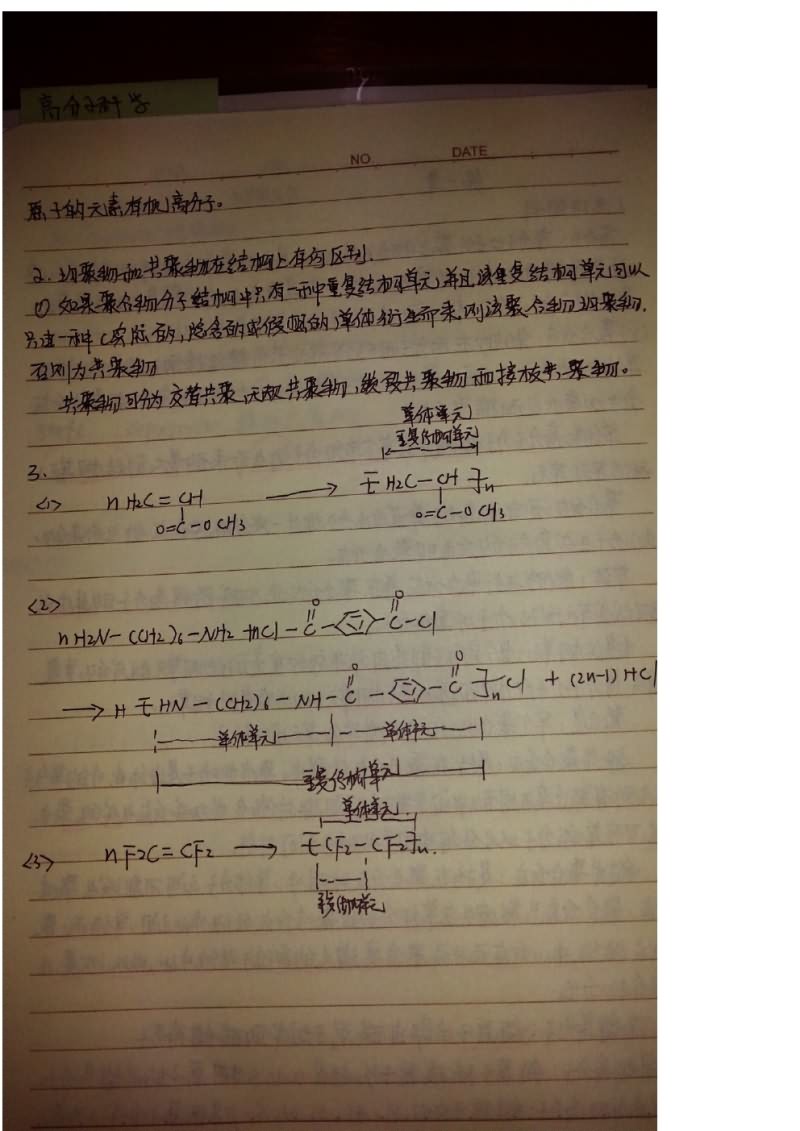 高分子科学
NO
DATE
原子的元素有机高分子。
2. 均聚物和共聚物在结构上有何区别.
① 如果聚合物分子结构中只有一种重复结构单元,并且该重复结构单元可以
只由一种(实际的,隐含的或假想的)单体衍生而来,则该聚合物均聚物.
否则为共聚物
共聚物可分为交替共聚,无规共聚物,嵌段共聚物和接枝共聚物。
单体单元
重复结构单元
3.
<1> nH2C=CH → [H2C-CH]n
O=C-OCH3 O=C-OCH3
<2>
O O
nH2N-(CH2)6-NH2 + nCl-C- -C-Cl
O O
→ H[HN-(CH2)6-NH-C- -C]nCl + (2n-1)HCl
单体单元 单体单元
重复结构单元
单体单元
<3> nF2C=CF2 → [CF2-CF2]n.
重复结构单元